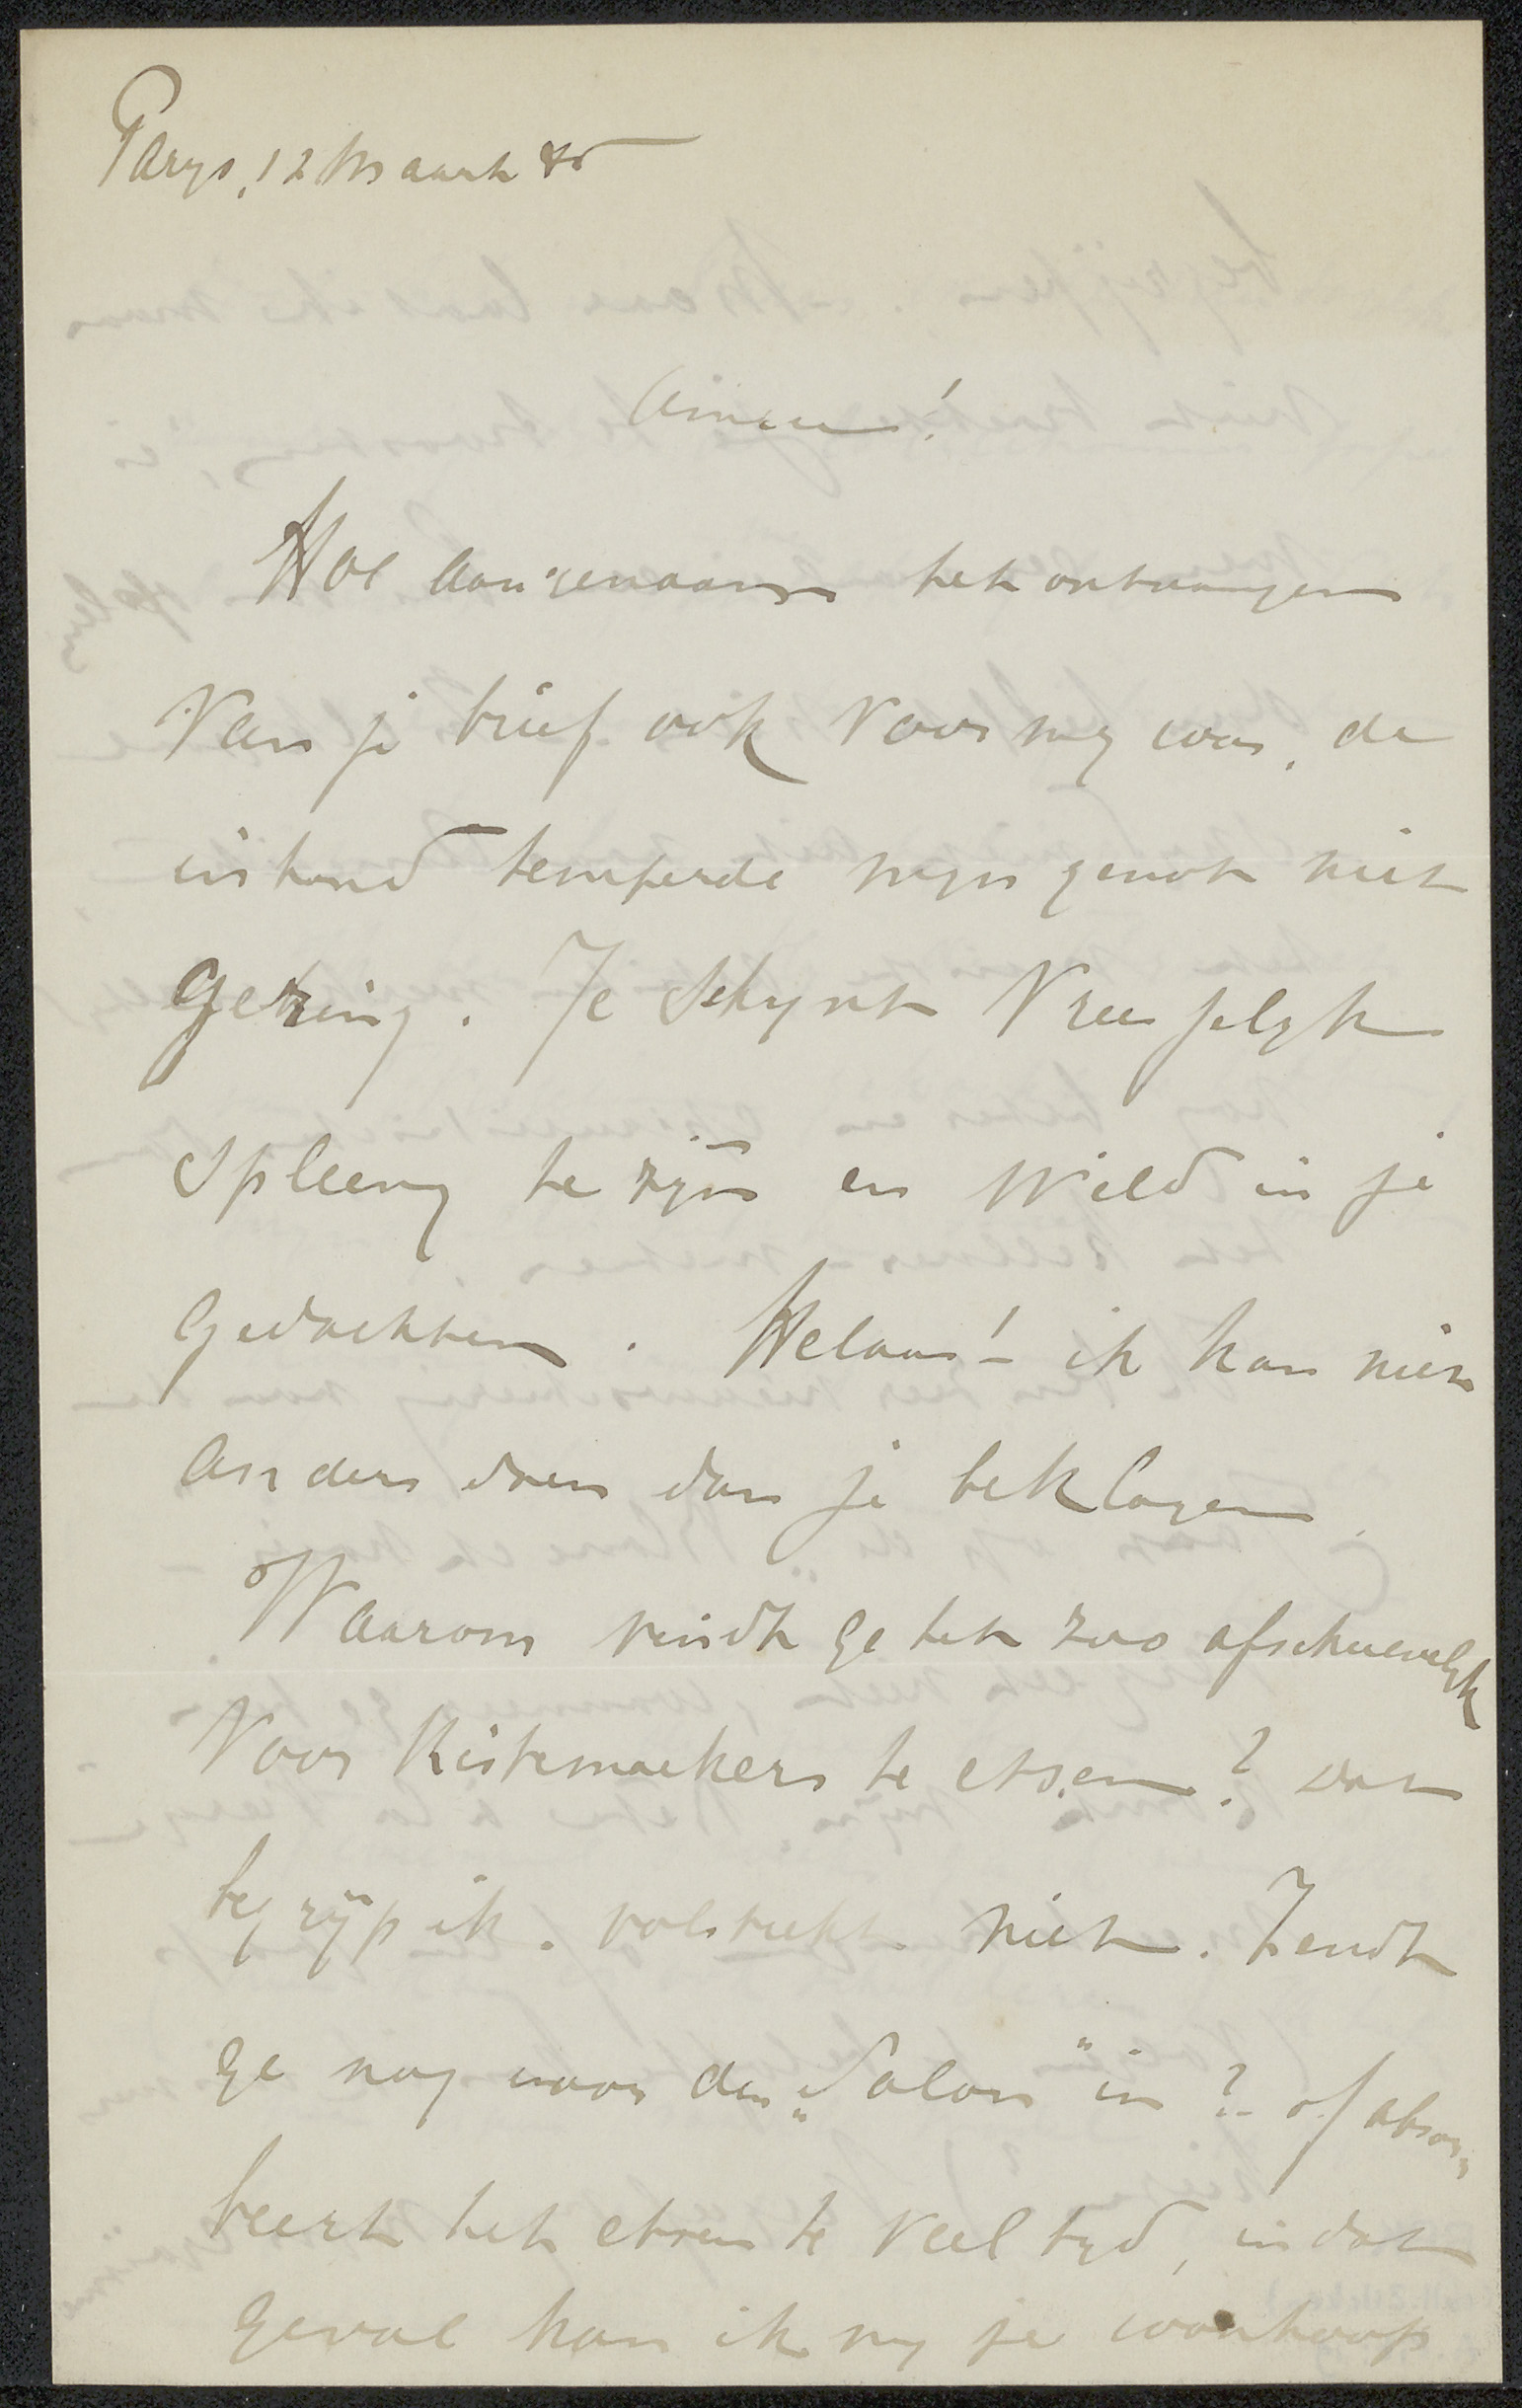 Parys, 12 Maart 85
Amice!
Hoe aangenaam het ontvangen
van je brief ook voor my was, de
inhoud temperde myn genot niet
gering. Je schynt vreeselyk
spleeny te zijn en wild in je
gedachten. Helaas! – ik kan niet
anders doen dan je beklagen.
Waarom vindt ge het zoo afschuwelyk
voor Kistemaekers te etsen? dat
begrijp ik volstrekt niet. Zendt
ge nog voor den „Salon" in? – of absor„
beert het etsen te veel tyd, in dat
geval kan ik my je wanhoop